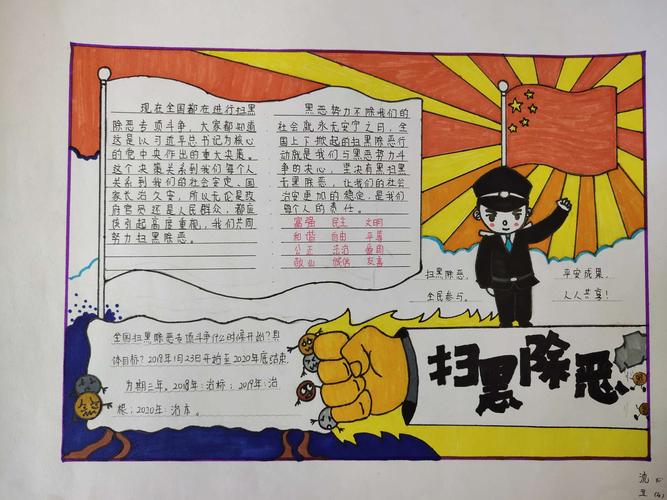 现在全国都在进行扫黑
除恶专项斗争，大家都知道
这是以习近平总书记为核心
的党中央作出的重大决策。
这个决策关系到我们每个人
关系到我们的社会安定、国
家长治久安，所以无论是政
府官员还是人民群众，都应
该引起高度重视，我们共同
努力扫黑除恶。
黑恶势力不除我们的
社会就永无安宁之日，全
国上下掀起的扫黑除恶行
动就是我们与黑恶势力斗
争的决心，坚决有黑扫黑
无黑除恶，让我们的社会
治安更加的稳定，是我们
每个人的责任。
富强 民主 文明
和谐 自由 平等
公正 法治 爱国
敬业 诚信 友善
扫黑除恶，
全民参与。
平安成果，
人人共享！
全国扫黑除恶专项斗争什么时候开始？具
体目标？2018年1月23日开始至2020年底结束，
为期三年。2018年：治标；2019年：治
根；2020年：治本。
扫黑除恶